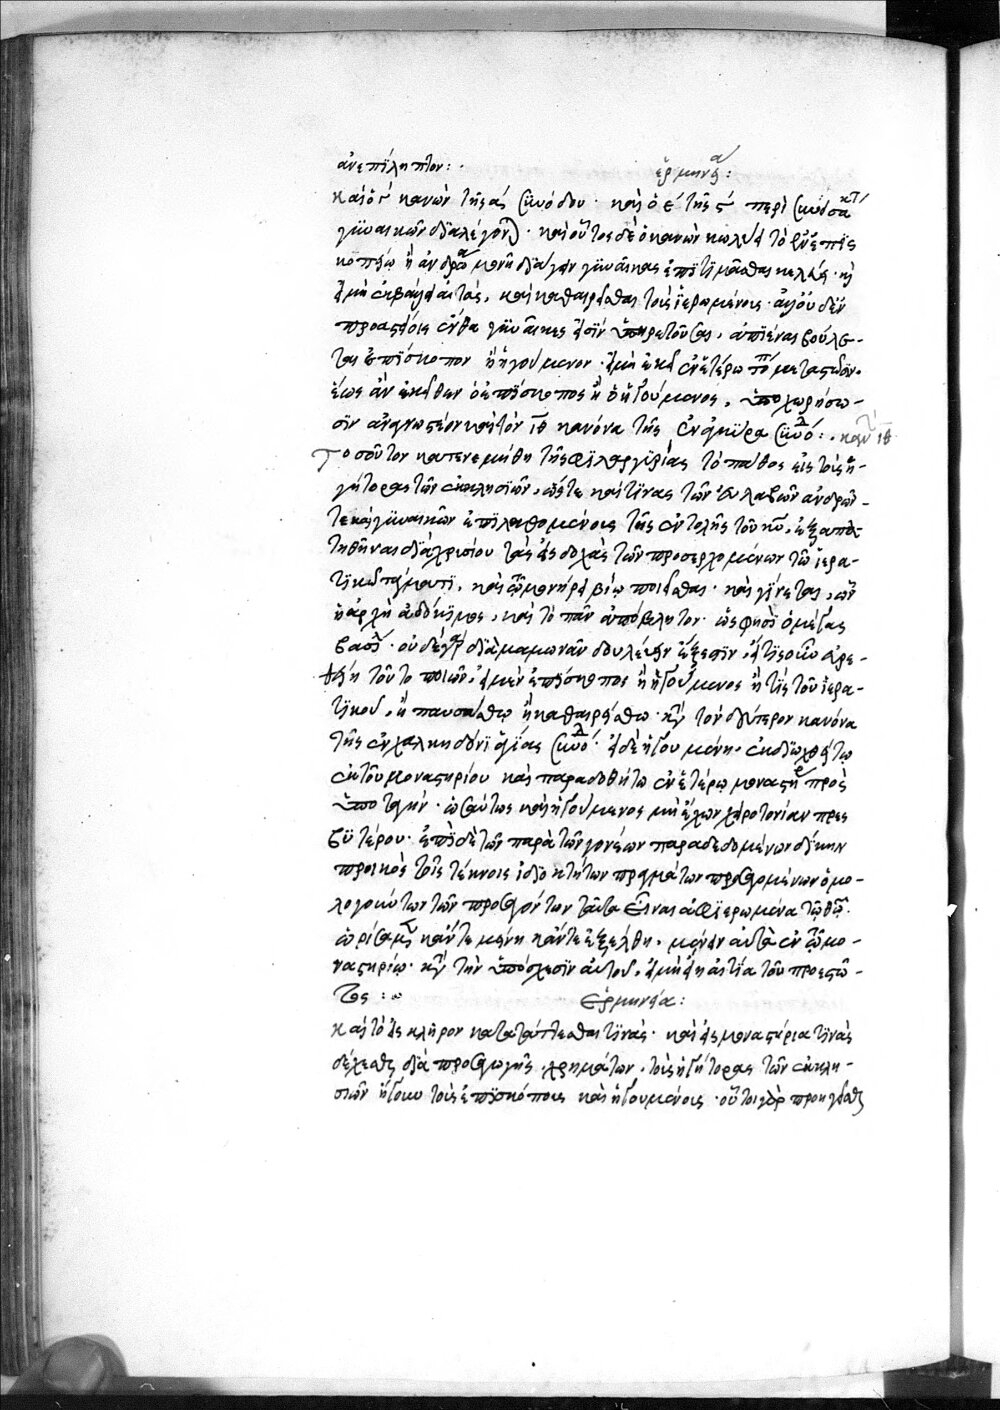 ἀνεπίληπτον: ἑρμηνεία:
καὶ ὁ γ´ κανὼν τῆς α´ συνόδου· καὶ ὁ ε´ τῆς ϛ´ περὶ συνεισάκτων
γυναικῶν διαλέγονται· καὶ οὗτος δὲ ὁ κανὼν κωλύει τὸ ἐν ἐπισ
κοπείω ἢ ἀνδρώα μονῆ διάγειν γυναῖκας ἐπιτιμᾶσθαι κελεύει·
εἰ μὴ ἐκβάλει αὐτάς, καὶ καθαιρεῖσθαι τοὺς ἱερωμένους· ἀλλ' οὐδ' ἐν
προαστείοις ἔνθα γυναῖκες εἰσὶν ὑπηρετοῦσαι, ἀπιέναι βούλε-
ται ἐπίσκοπον ἢ ἡγούμενον· εἰ μὴ ἐκεῖ ἐν ἑτέρω τόπω μετασταῖεν·
ἕως ἂν ἐκεῖθεν ὁ ἐπίσκοπος ἢ ὁ ἡγούμενος, ὑποχωρήσω-
σιν ἀναγνωστέον καὶ τὸν ιθ κανόνα τῆς ἐν ἀγκύρα συνόδου: κανὼν ιθ
Τοσοῦτον κατενεμήθη τῆς φιλαργυρίας τὸ πάθος εἰς τοὺς ἡ-
γήτορας τῶν ἐκκλησιῶν, ὥστε καί τινας τῶν εὐλαβῶν ἀνδρῶν
τε καὶ γυναικῶν ἐπιλαθομένους τῆς ἐντολῆς τοῦ κυ, ἐξαπα-
τηθῆναι διὰ χρυσίου τὰς εἰσδοχὰς τῶν προσερχομένων τῶ ἱερα-
τικῶ τάγματι, καὶ τῶ μονήρει βίω ποιεῖσθαι· καὶ γίνεται, ὧν
ἡ ἀρχὴ ἀδόκιμος, καὶ τὸ πᾶν ἀπόβλητον· ὥς φησὶ ὁ μέγας
βασίλειος· οὐδὲ γὰρ διὰ μαμωνᾶν δουλεύειν ἔξεστιν, εἴ τις οὖν εὑρε-
θείη τοῦτο ποιῶν, εἰ μὲν ἐπίσκοπος ἢ ἡγούμενος ἤ τις τοῦ ἱερα-
τικοῦ, ἢ παυσάσθω ἢ καθαιρείσθω· κατὰ τὸν δεύτερον κανόνα
τῆς ἐν χαλκηδόνι ἁγίας συνόδου· εἰ δὲ ἡγουμένη, ἐκδιωχθήτω
ἐκ τοῦ μοναστηρίου καὶ παραδοθήτω ἐν ἑτέρω μοναστηρίω πρὸς
ὑποταγήν· ὡσαύτως καὶ ἡγούμενος μὴ ἔχων χειροτονίαν πρεσ
βυτέρου· ἐπὶ δὲ τῶν παρὰ τῶν γονέων παραδεδομένων δίκην
προικὸς τοῖς τέκνοις ἰδιοκτήτων πραγμάτων προσαγομένων ὁμο-
λογούντων τῶν προσαγόντων ταῦτα εἶναι ἀφιερωμένα τῶ θῶ·
ὡρίσαμεν κἄν τε μένη κἄν τε ἐξέλθη, μένειν αὐτὰ ἐν τῶ μο-
ναστηρίω· κατὰ τὴν ὑπόσχεσιν αὐτοῦ, εἰ μὴ εἴη αἰτία τοῦ προεστῶ-
τος: ἑρμηνεία:
Καὶ τὸ εἰς κλῆρον κατατάττεσθαι τινάς· καὶ εἰς μοναστήρια τινὰς
δέχεσθαι διὰ προσαγωγῆς χρημάτων, τοὺς ἡγήτορας τῶν ἐκκλη-
σιῶν ἤγουν τοὺς ἐπισκόπους καὶ ἡγουμένους· οὗτοι γὰρ προηγεῖσθαι